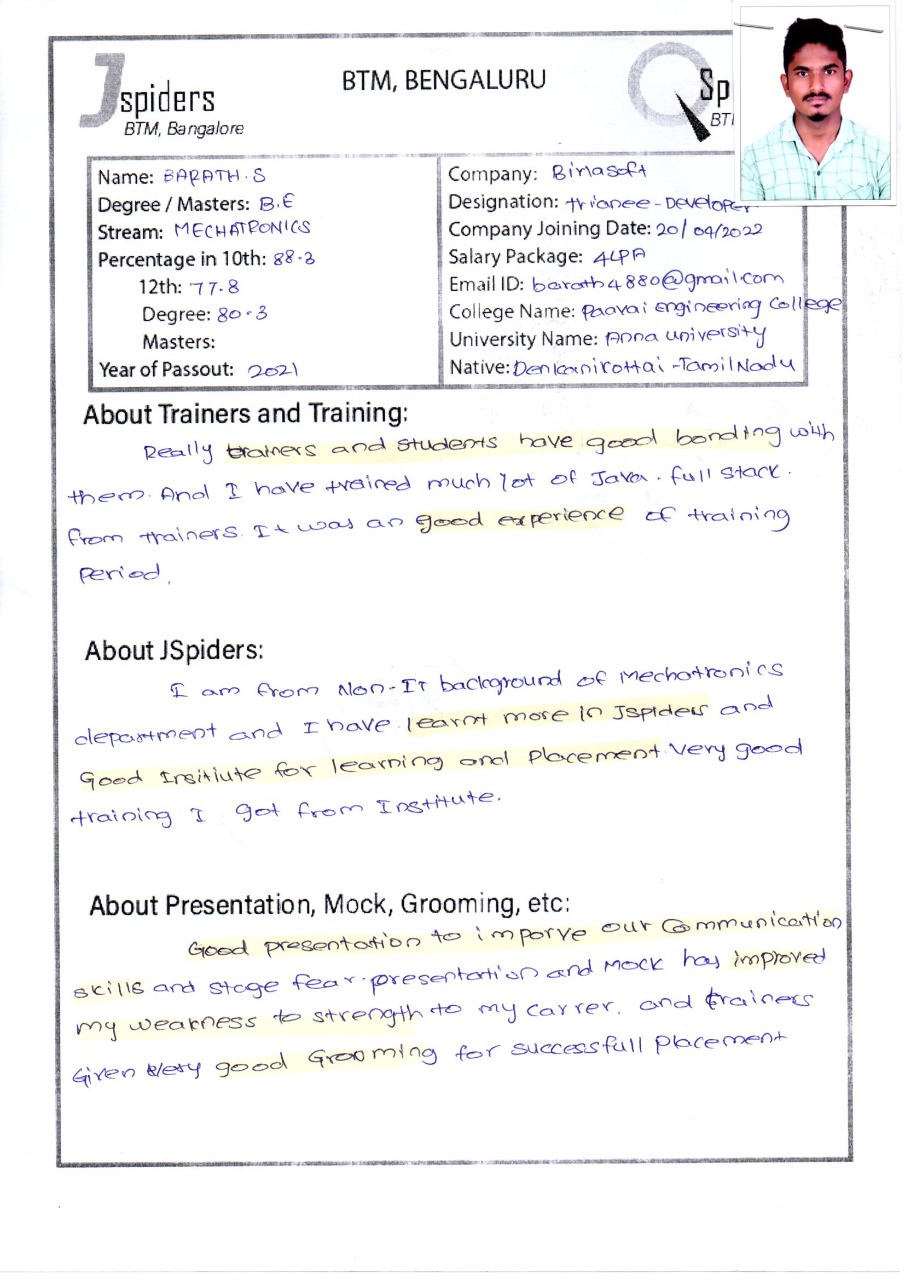 Jspiders
BTM, Bangalore
BTM, BENGALURU
Sp
BT
Name: BARATH.S
Degree / Masters: B.E
Stream: MECHATRONICS
Percentage in 10th: 88.3
12th: 77.8
Degree: 80.3
Masters:
Year of Passout: 2021
Company: Birlasoft
Designation: trianee-Developer
Company Joining Date: 20/04/2022
Salary Package: 4LPA
Email ID: barath4880@gmail.com
College Name: Paavai Engineering College
University Name: Anna University
Native: Denkanikottai-TamilNadu
About Trainers and Training:
Really trainers and students have good bonding with
them. And I have trained much lot of Java. full stack.
from trainers. It was an good experience of training
Period.
About JSpiders:
I am from Non-IT background of Mechatronics
department and I have learnt more in Jspiders and
Good Insitiute for learning and Placement Very good
training I got from Institute.
About Presentation, Mock, Grooming, etc:
Good presentation to imporve our Communication
skills and stage fear. presentation and Mock has improved
my weakness to strength to my carrer. and trainers
Given very good Grooming for successfull Placement